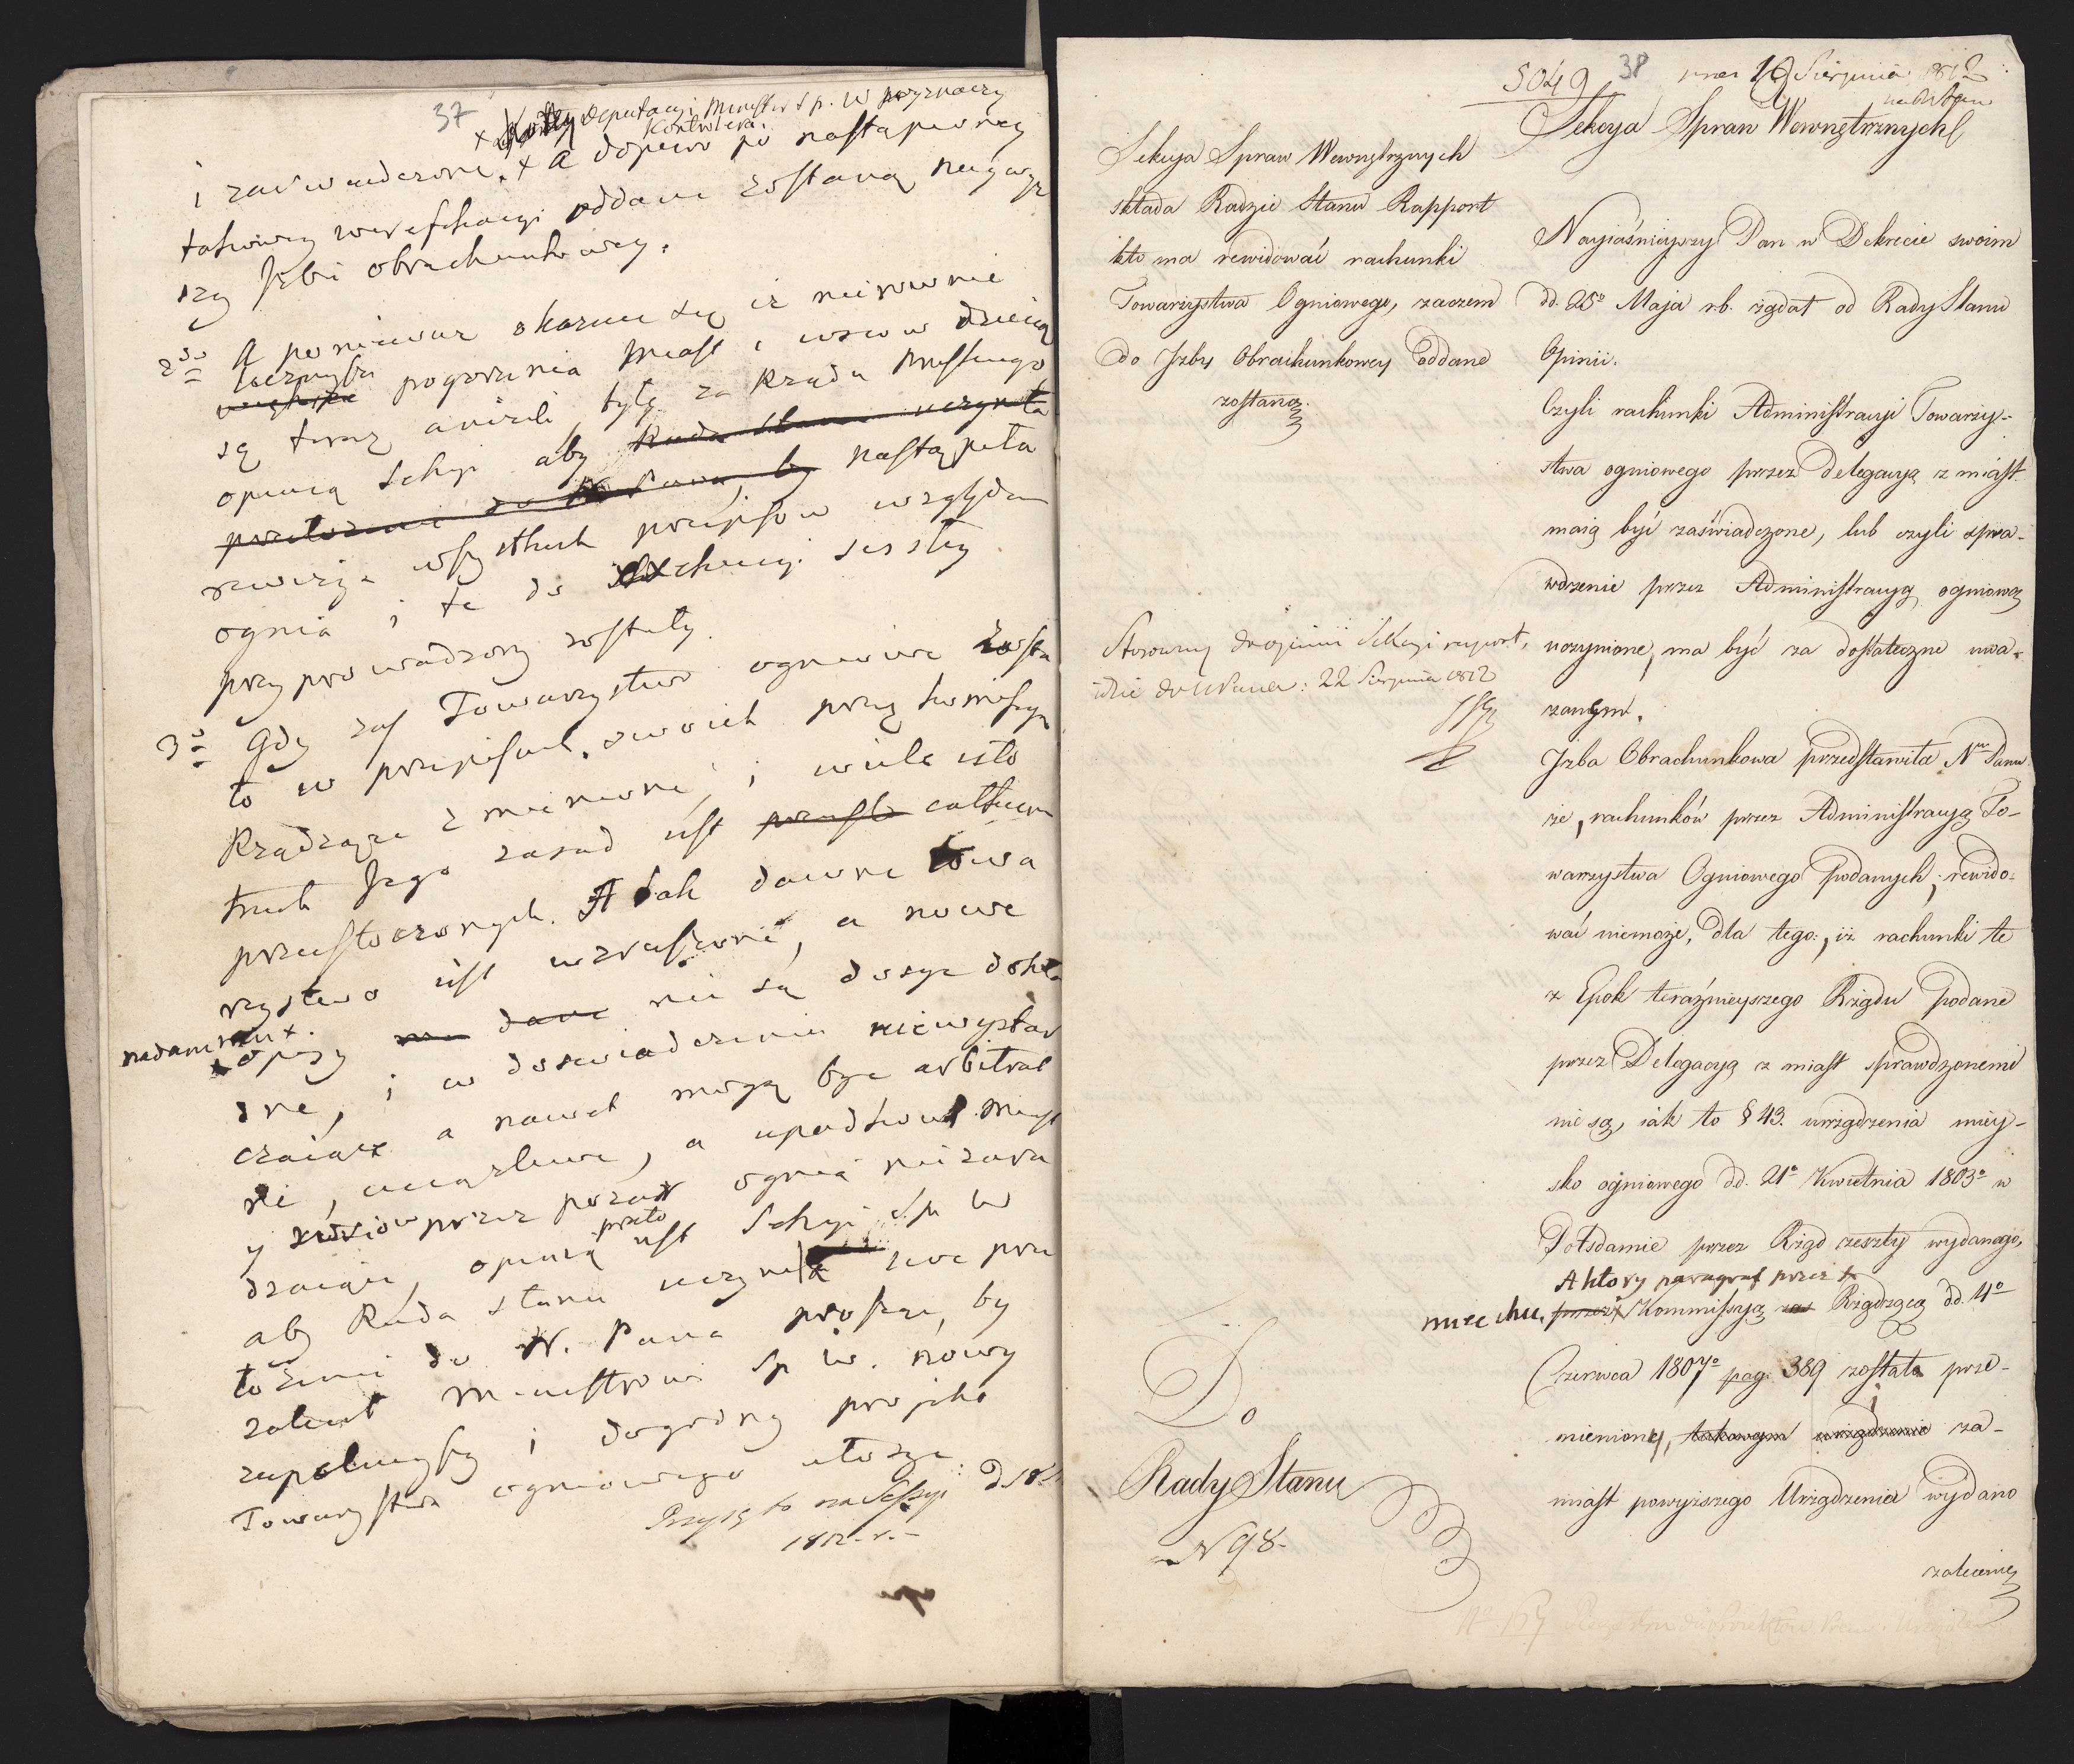 37
Deputacyi Minister S p. W wyznaczy
Kontrolera.
i zaświadczone, + a dopiero po nastąpioney
takowey werefikacyi oddane zostaną naywyż
szey Jzbie obrachunkowey.
2do A ponieważ okazuie się iż nierównie
licznieysze pogorzenia miast i wsiów dzieią
są teraz aniżeli były za Rządu Pruskiego
opinią Sekcyi aby Rada Stanu uczyniła
przełożenie do N Pana, by nastąpiła
rewizya wszystkich przepisów względem
ognia i te do exekucyi ścisłey
przyprowadzony zostały.
3o Gdy zaś Towarzystwo ogniowe zosta
ło w przepisach swoich przez kommissyą
Rządzącą zmienione, i wiele isto
tnych Jego zasad iest całkiem
przeistoczonych. A tak dawne towa
rzystwo iest wzruszone, a nowe
nadane
opisy dane nie są dosyć dokła
dne, i w doświadczeniu niewystar
czaiące a nawet mogą być arbitral
ne, uciążliwe, a upadkowi miast
y wsiów przez pożar ognia niezara
dzaiące, opinią przeto iest Sekcyi Sp W
aby Rada Stanu uczyniła swe prze
łożenie do N. Pana prosząc, by
zalecił Ministrowi Sp W. nowy
zupełnieyszy i dogodny projekt
Towarzystwa ogniowego ułożyć
Przyięto na Sessyi: D. 18
1812. r.
5049 38 prae: 19 Sierpnia 1812
Sekcya Spraw Wewnętrznych
Sekcya Spraw Wewnętrznych
składa Radzie Stanu Rapport
kto ma rewidować rachunki
Towarzystwa Ogniowego, zaczem
do Jzby Obrachunkowey oddane
zostaną.
Stosowny do opinii Sekcyi raport,
idzie do N Pana: 22 Sierpnia 1812
Do
Rady Stanu
N 98.
Nayiaśnieyszy Pan w Dekrecie swoim
dd. 25o Maja r.b. rządał od Rady Stanu
Opinii.
Czyli rachunki Administracyi Towarzy-
stwa ogniowego przez Delegacyą z miast
maią być zaświadczone, lub czyli spra-
wdzenie przez Administracyą ogniową
uczynione, ma być za dostateczne uwa-
zanem.
Jzba Obrachunkowa przedstawiła Nmu Panu
że, rachunków przez Administracyą To-
warzystwa Ogniowego podanych, rewido-
wać niemoże, dla tego, iż rachunki te
z Epok teraźnieyszego Rządu podane
przez Delegacyą z miast sprawdzonemi
nie są, iak to § 43. urządzenia miey-
sko ogniowego dd. 21o Kwietnia 1803o w
Potsdamie przez Rząd zeszły wydanego,
A który paragraf przez
przez Kommissyą Rządzącą dd. 4o
Czerwca 1807o pag: 389 została prze-
mieniony, takowym urządzenie za-
miast powyższego Urządzenia wydano
zalecenie